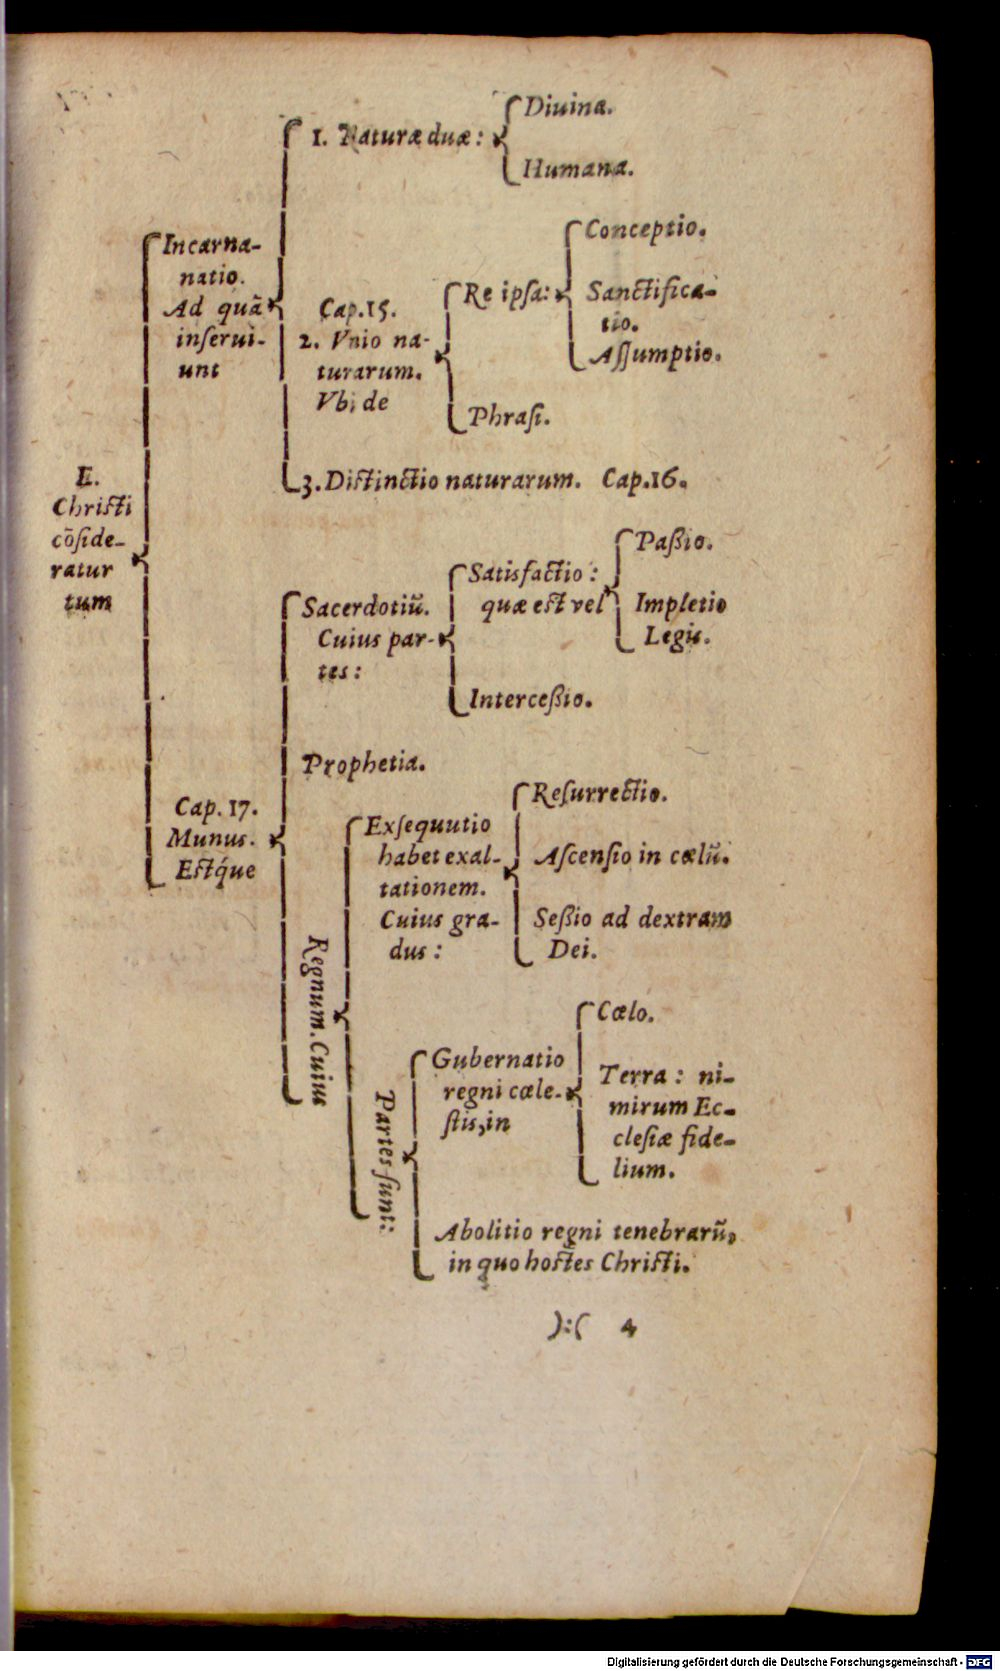 E.
Christi
cōside-
ratur
tum
Incarna-
natio.
Ad quā
inserui-
unt
1. Naturæ duæ:
Diuina.
Humana.
Cap.15.
2. Vnio na-
turarum.
Vbi de
Re ipsa:
Conceptio.
Sanctifica-
tio.
Assumptio.
Phrasi.
3. Distinctio naturarum. Cap.16.
Cap.17.
Munus.
Estq́ue
Sacerdotiū.
Cuius par-
tes:
Satisfactio:
quæ est vel
Paßio.
Impletio
Legis.
Interceßio.
Prophetia.
Regnum. Cuius
Exsequutio
habet exal-
tationem.
Cuius gra-
dus:
Resurrectio.
Ascensio in cœlū.
Seßio ad dextram
Dei.
Partes sunt:
Gubernatio
regni cœle-
stis, in
Cœlo.
Terra: ni-
mirum Ec-
clesiæ fide-
lium.
Abolitio regni tenebrarū,
in quo hostes Christi.
):( 4
Digitalisierung gefördert durch die Deutsche Forschungsgemeinschaft - DFG